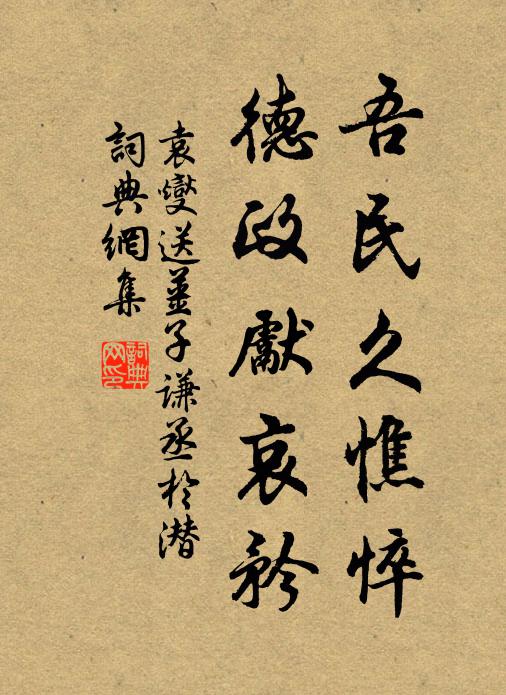 吾民久憔悴
德政獻哀矜
袁燮送薑子謙丞於潛
詞典網集
詞典网印